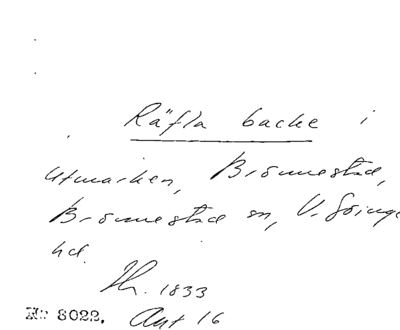 Räfla backe i
utmarken, Brönnestad,
Brönnestad sn, V. Göinge
hd.
Th. 1833
Nr 8022. Ant 16